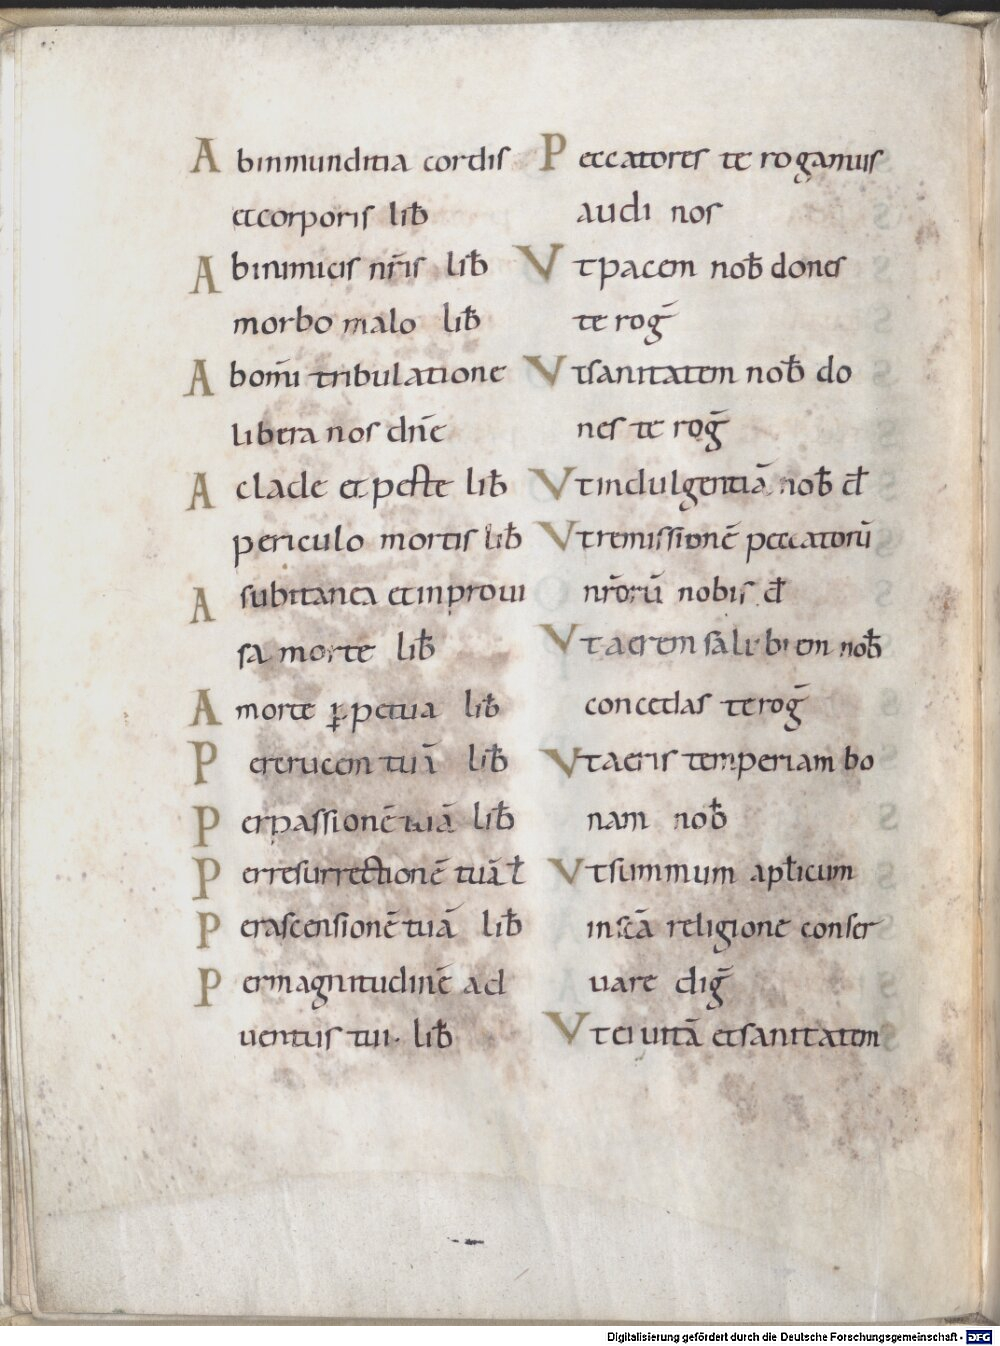 A binmunditia cordis
etcorporis lib̄
A binimicis nr̄is lib̄
morbo malo lib̄
A bom̄i tribulatione
libera nos dn̄e
A clade et peste lib̄
periculo mortis lib̄
A subitanea etinproui
sa morte lib̄
A morte ꝑpetua lib̄
P ercrucem tuā lib̄
P erpassionē tuā lib̄
P erresurrectionē tuā l̄
P erascensionē tuā lib̄
P ermagnitudinē ad
uentus tui· lib̄
P eccatores te rogamus
audi nos
V tpacem nob̄ dones
te roḡ
V tsanitatem nob̄ do
nes te roḡ
V tindulgentiā nob̄ d̄
V tremissionē peccatorū
nr̄orū nobis d̄
V taerem salubrem nob̄
concedas teroḡ
V taeris temperiam bo
nam nob̄
V tsummum apl̄icum
inscā religione conser
uare diḡ
V tei uitā etsanitatem
Digitalisierung gefördert durch die Deutsche Forschungsgemeinschaft - DFG